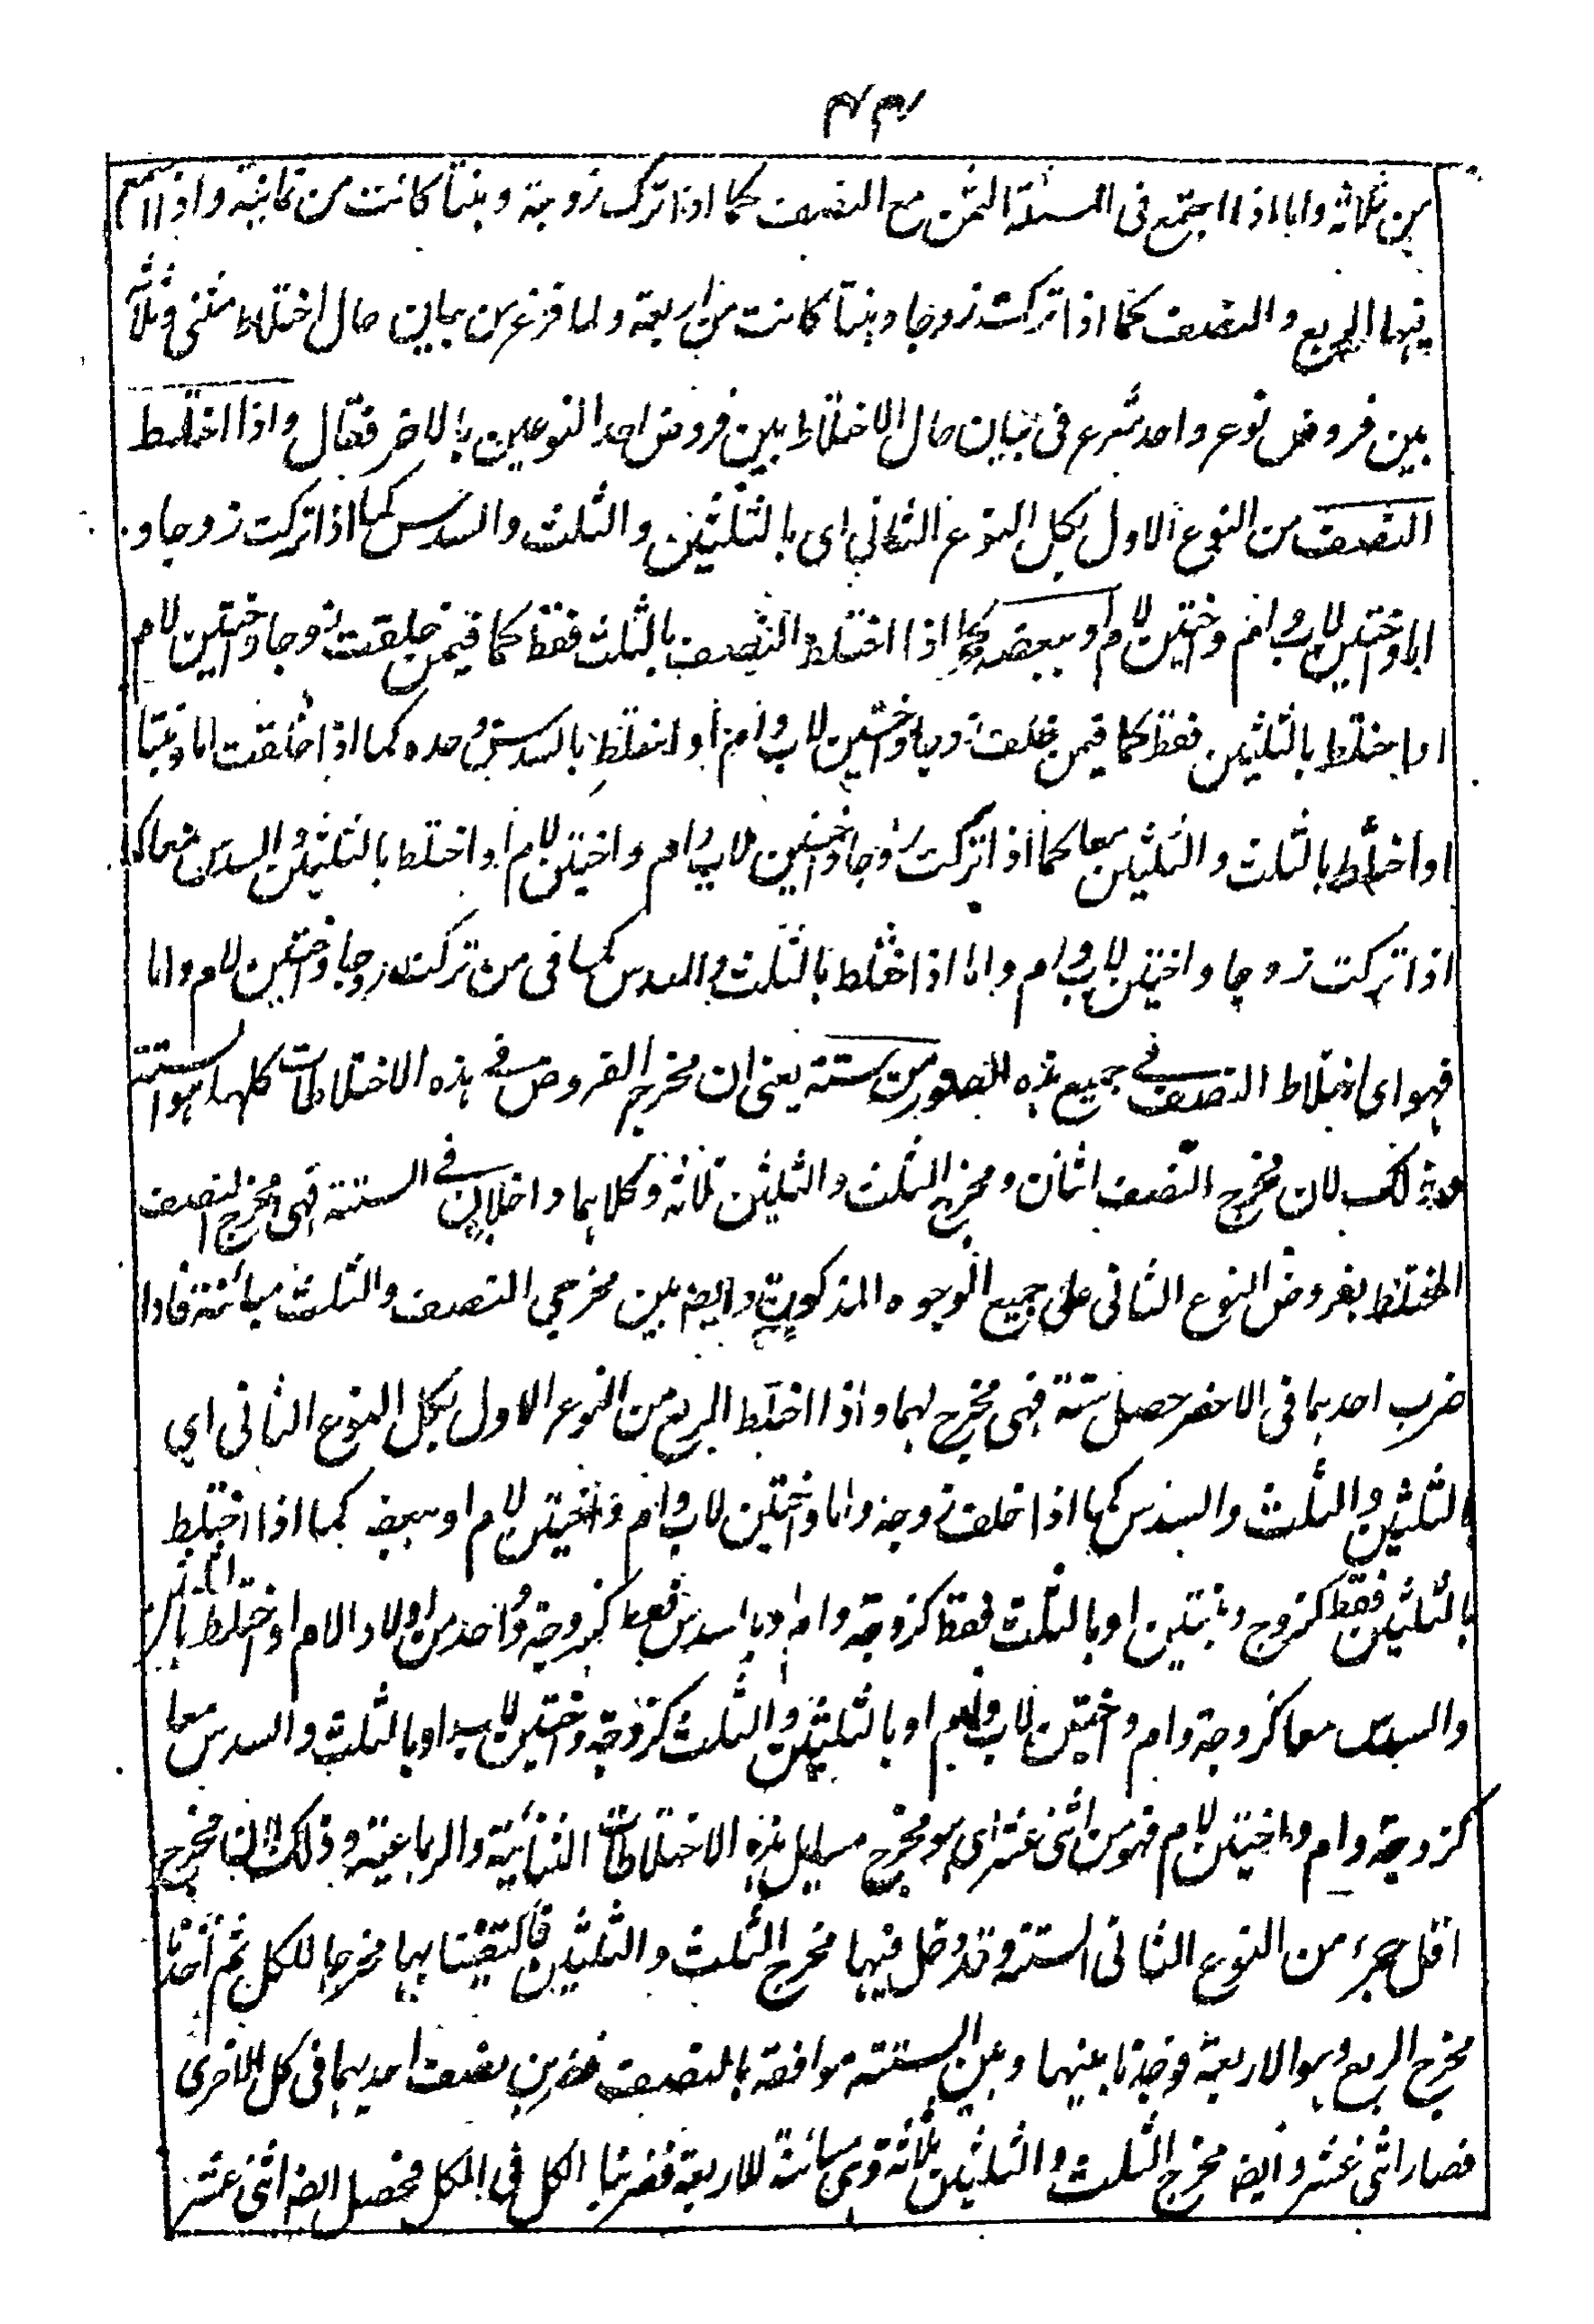 من ثلاثة واما اذا اجتمع فى المسئلة الثمن مع النصف كما اذا ترك زوجة وبنتا كانت من ثمانية واذا اجتمع
فيها الربع والنصف كما اذا تركت زوجا وبنتا كانت من اربعة ولما فرغ من بيان حال اختلاط مثنى وثلاث
بين فروض نوع واحد شرع فى بيان حال الاختلاط بين فروض احد النوعين بالاخر فقال واذا اختلط
النصف من النوع الاول بكل النوع الثانى اى بالثلثين والثلث والسدس كما اذا تركت زوجا و
اما واختين لاب وام واختين لام او ببعضه كما اذا اختلط النصف بالثلث فقط كما فيمن خلفت زوجا واختين لام
او اختلط بالثلثين فقط كما فيمن خلفت زوجا واختين لاب وام او اختلط بالسدس وحده كما اذا خلفت اما وبنتا
او اختلط بالثلث والثلثين معا كما اذا تركت زوجا واختين لاب وام واختين لام او اختلط بالثلثين والسدس معا كما
اذا تركت زوجا واختين لاب وام واما اذا اختلط بالثلث والسدس كما فى من تركت زوجا واختين لام واما
فهو اى اختلاط النصف فى جميع هذه الصور من ستة يعنى ان مخرج الفروض فى هذه الاختلاطات كلها هو الستة
وذلك لان مخرج النصف اثنان ومخرج الثلث والثلثين ثلاثة وكلاهما داخلان فى الستة فهى مخرج النصف
المختلط بفروض النوع الثانى على جميع الوجوه المذكورة وايضا بين مخرجي النصف والثلث مباينة فاذا
ضرب احدهما فى الاخر حصل ستة فهى مخرج لهما واذا اختلط الربع من النوع الاول بكل النوع الثانى اي
الثلثين والثلث والسدس كما اذا خلف زوجة واما واختين لاب وام واختين لام او ببعضه كما اذا اختلط
بالثلثين فقط كزوج وبنتين او بالثلث فقط كزوجة وام او بالسدس فقط كزوجة وواحد من اولاد الام او اختلط بالثلثين
والسدس معا كزوجة وام واختين لاب وام او بالثلثين والثلث كزوجة واختين لاب او بالثلث والسدس معا
كزوجة وام واختين لام فهو من اثنى عشر اى هو مخرج مسايل هذه الاختلاطات الثنائية والرباعية وذلك لان مخرج
اقل جزء من النوع الثانى الستة وقد دخل فيها مخرج الثلث والثلثين فاكتفينا بها مخرجا للكل ثم اخذنا
مخرج الربع وهو الاربعة فوجدنا بينها وبين الستة موافقة بالنصف فضرب نصف احديهما فى كل الاخرى
فصار اثنى عشر وايضا مخرج الثلث والثلثين ثلاثة وهى مباينة للاربعة فضربنا الكل فى الكل فحصل ايضا اثنى عشر